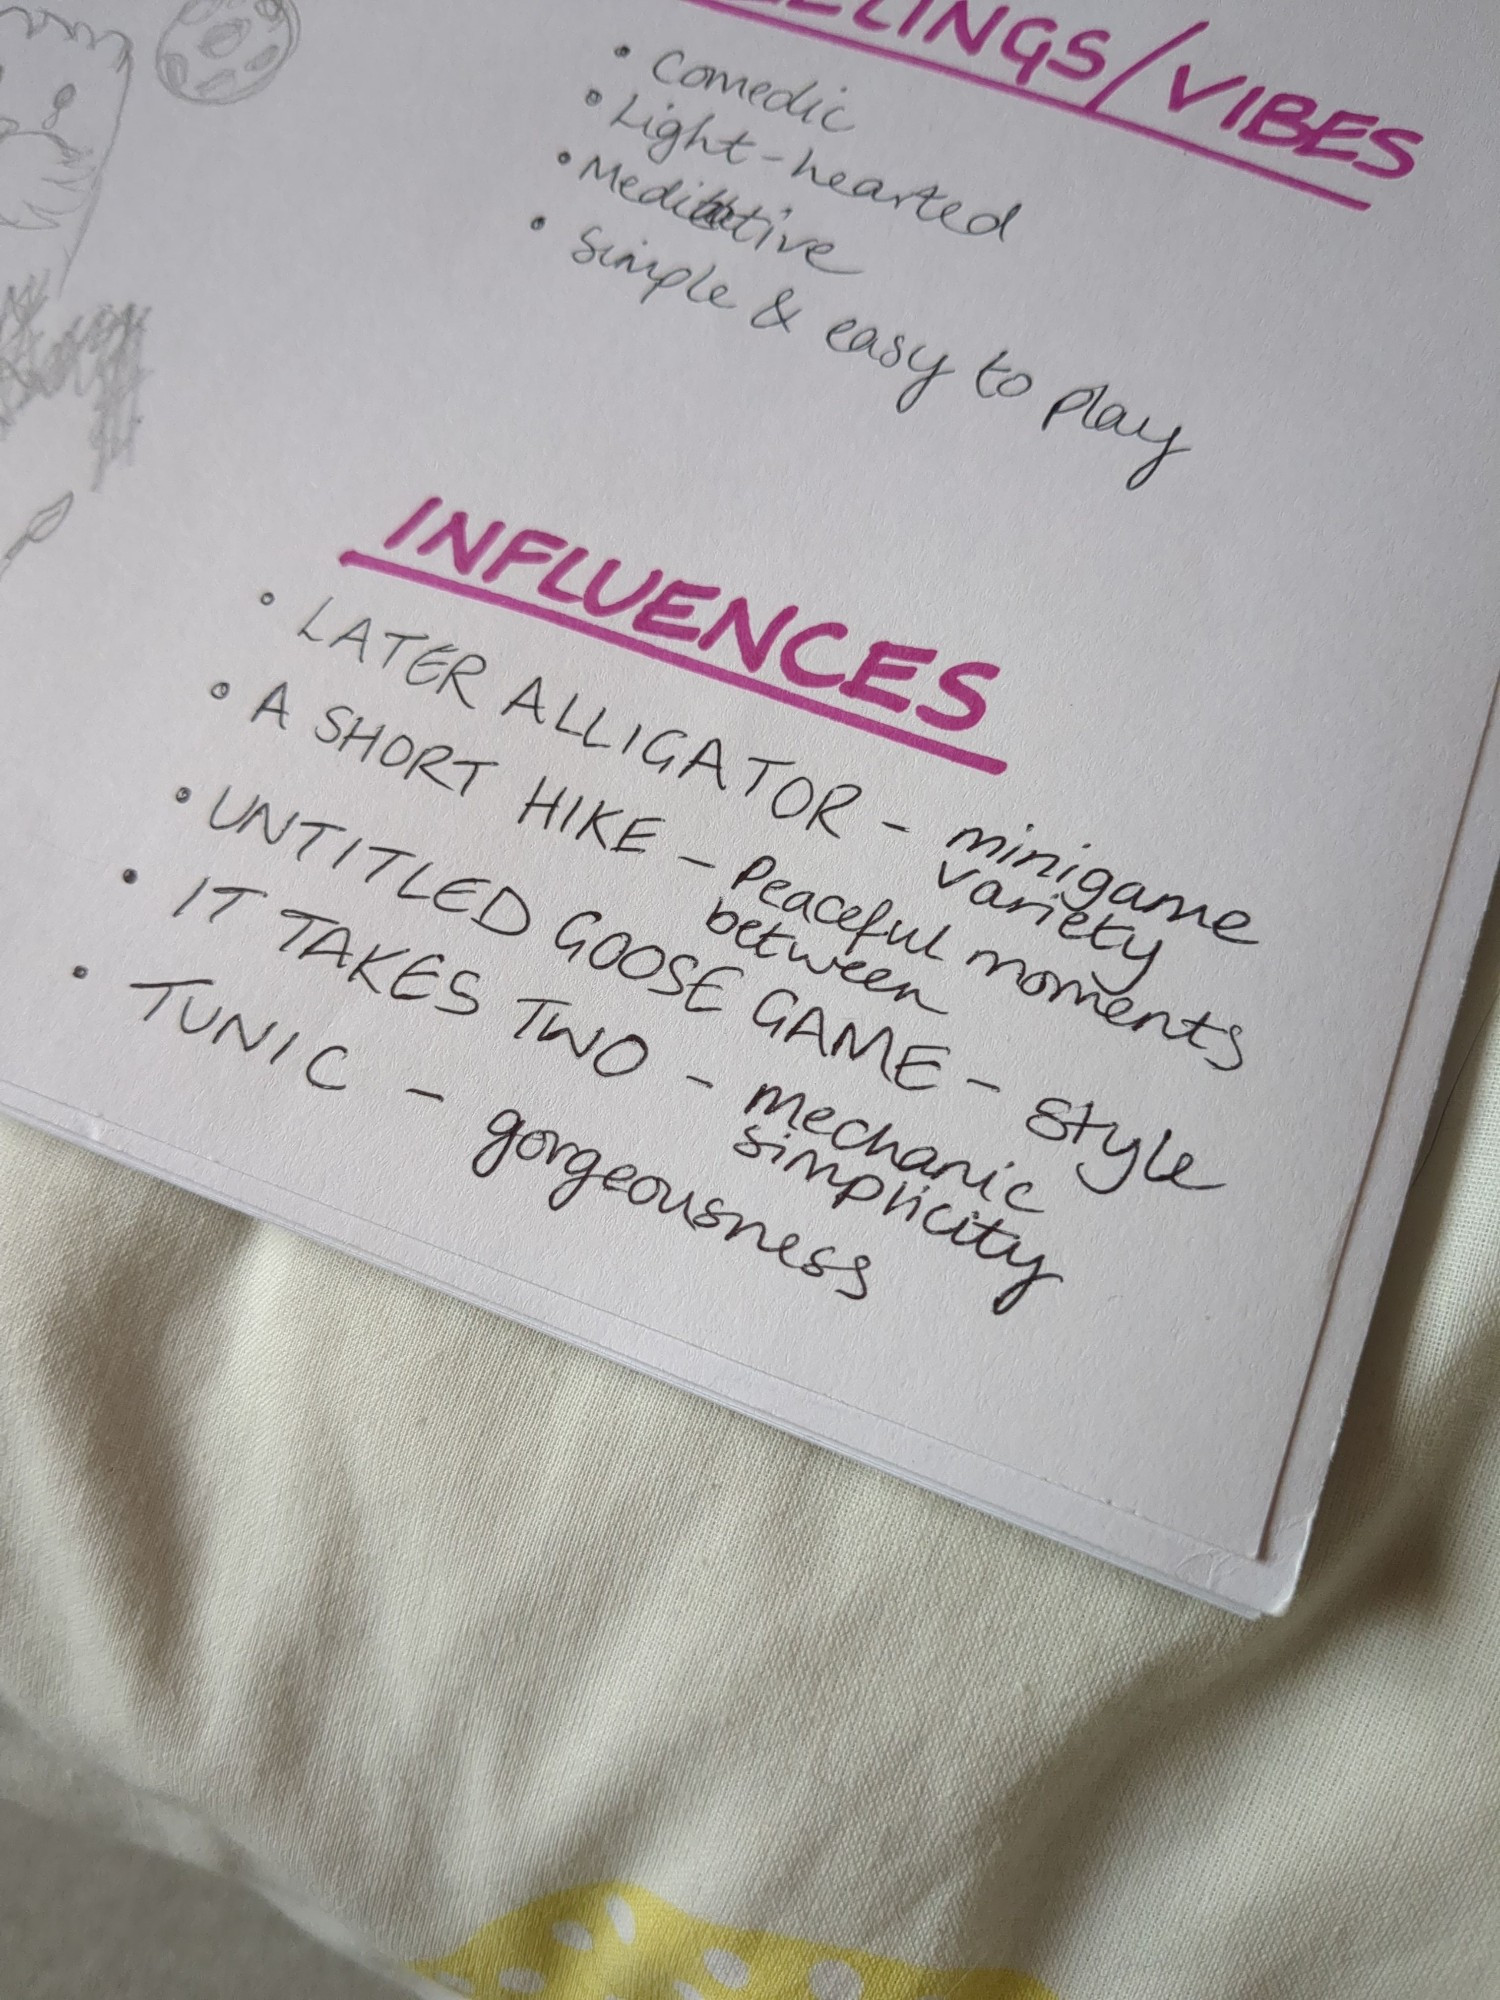 ELINGS/VIBES
• Comedic
• Light-hearted
• Meditative
• Simple & easy to play
INFLUENCES
• LATER ALLIGATOR - minigame
variety
• A SHORT HIKE - Peaceful moments
between
• UNTITLED GOOSE GAME - style
• IT TAKES TWO - mechanic
simplicity
• TUNIC - gorgeousness